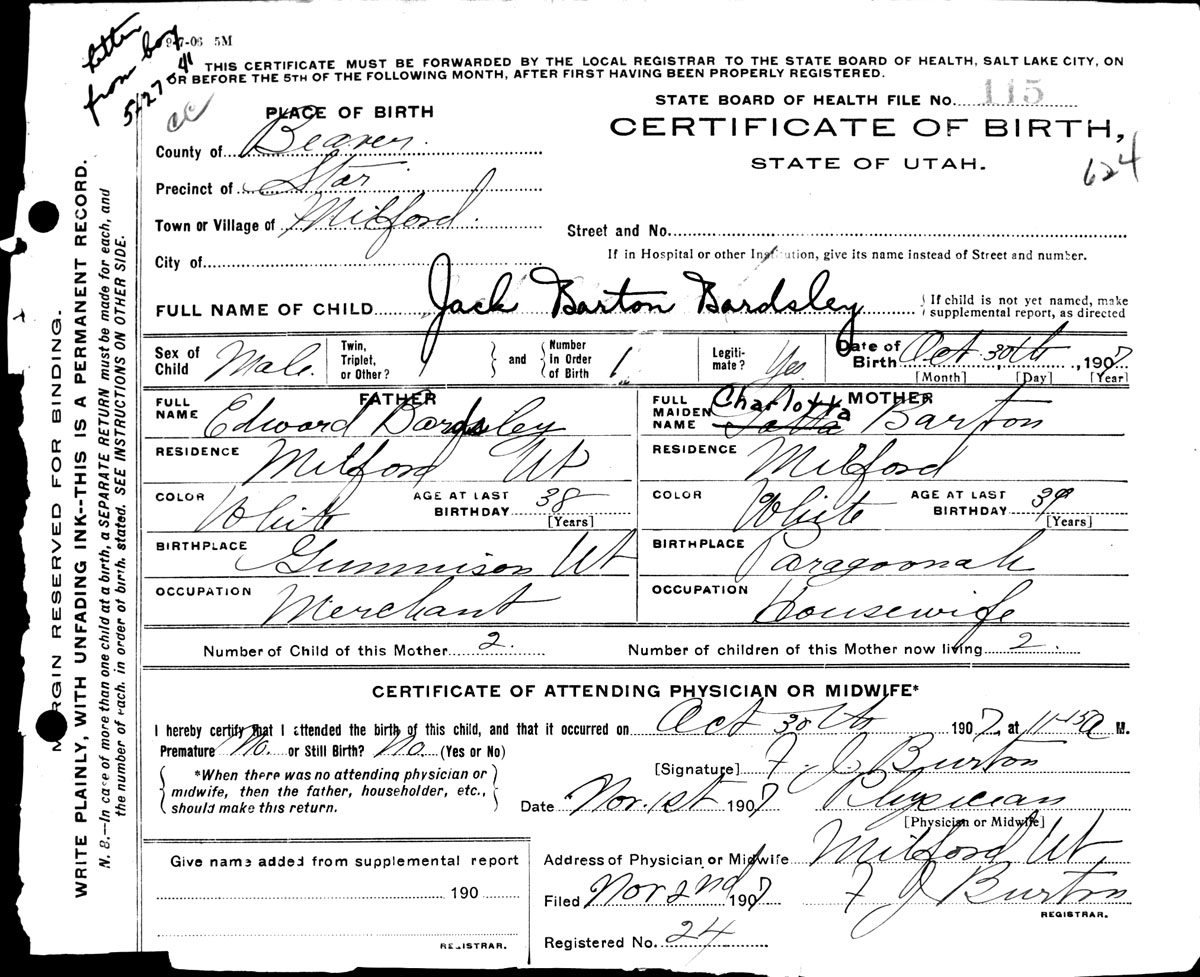 Letter
from boy
5/27 41
9-7-06 5M
THIS CERTIFICATE MUST BE FORWARDED BY THE LOCAL REGISTRAR TO THE STATE BOARD OF HEALTH, SALT LAKE CITY, ON
OR BEFORE THE 5TH OF THE FOLLOWING MONTH, AFTER FIRST HAVING BEEN PROPERLY REGISTERED.
STATE BOARD OF HEALTH FILE No. 115
CERTIFICATE OF BIRTH,
STATE OF UTAH.
624
PLACE OF BIRTH
County of Beaver.
Precinct of Star
Town or Village of Milford.
City of
Street and No.
If in Hospital or other Institution, give its name instead of Street and number.
FULL NAME OF CHILD Jack Barton Bardsley
If child is not yet named, make
supplemental report, as directed
Sex of Child Male.
Twin, Triplet, or Other?
and
Number In Order of Birth 1
Legiti-mate? Yes
Date of Birth Oct 30th, 1907
[Month] [Day] [Year]
FATHER
FULL NAME Edward Bardsley
RESIDENCE Milford Ut
COLOR White
AGE AT LAST BIRTHDAY 38
[Years]
BIRTHPLACE Gunnison Ut
OCCUPATION Merchant
MOTHER
FULL MAIDEN NAME Charlotta Lotta Barton
RESIDENCE Milford
COLOR White
AGE AT LAST BIRTHDAY 39
[Years]
BIRTHPLACE Paragoonah
OCCUPATION Housewife
Number of Child of this Mother 2.
Number of children of this Mother now living 2.
CERTIFICATE OF ATTENDING PHYSICIAN OR MIDWIFE*
I hereby certify that I attended the birth of this child, and that it occurred on Oct 30th 1907, at 11-15 a M.
Premature No. or Still Birth? No. (Yes or No)
*When there was no attending physician or
midwife, then the father, householder, etc.,
should make this return.
[Signature] F. J. Burton
Date Nov. 1st 1907 Physician
[Physician or Midwife]
Address of Physician or Midwife Milford Ut,
Filed Nov 2nd 1907 F J Burton
REGISTRAR.
Registered No. 24
Give name added from supplemental report
190
REGISTRAR.
MARGIN RESERVED FOR BINDING.
WRITE PLAINLY, WITH UNFADING INK--THIS IS A PERMANENT RECORD.
N. B.—In case of more than one child at a birth, a SEPARATE RETURN must be made for each, and
the number of each, in order of birth, stated. SEE INSTRUCTIONS ON OTHER SIDE.